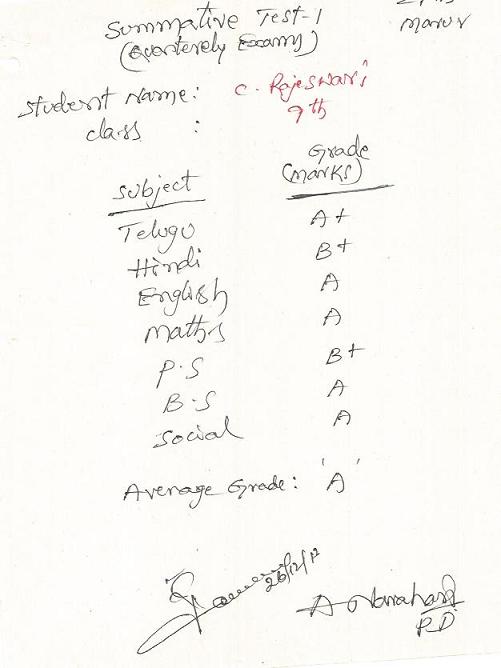 Summative Test-1
(Quarterely Exams)
Student Name: C. Rajeswari
class : 9th
Subject Grade (Marks)
Telugu A+
Hindi B+
English A
Maths A
P.S B+
B.S A
Social A
Average Grade: 'A'
26/12/12
P.D